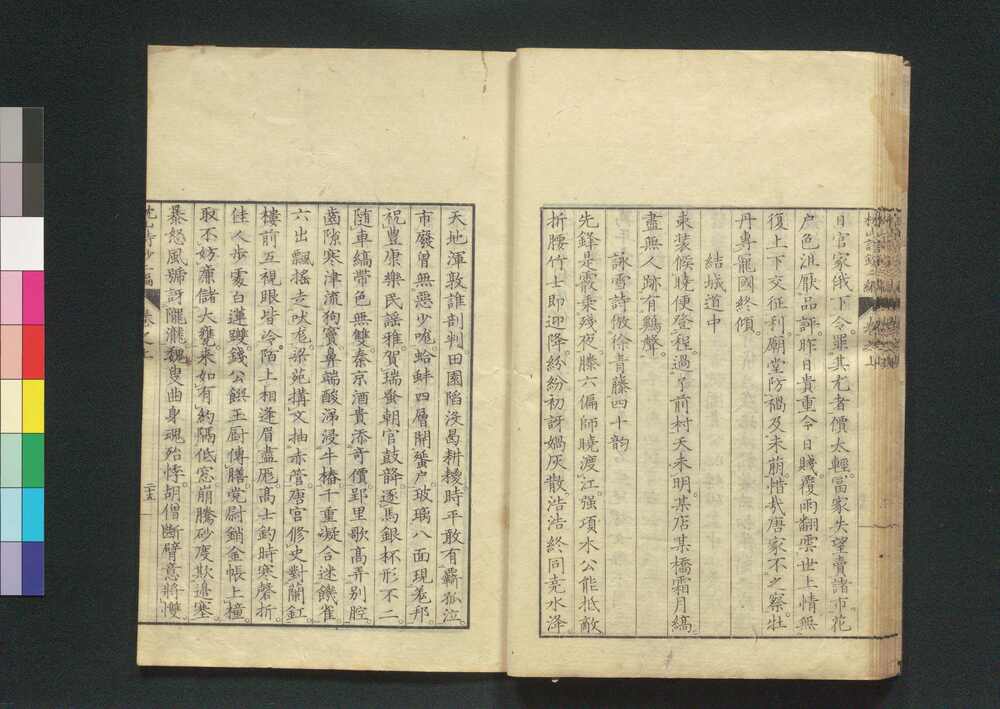 日官家俄下令罪其尤者價太輕富家失望賣諸市花
戶色沮厭品評昨日貴重今日賤覆雨翻雲世上情無
復上下交征利廟堂防禍及未萠惜哉唐家不之察牡
丹專寵國終傾
結城道中
束装候曉便登程過了前村天未明某店某橋霜月縞
盡無人跡有鷄聲
詠雪詩傚徐青藤四十韵
先鋒是霰乗殘夜滕六偏師曉渡江强項水公能抵敵
折腰竹士即迎降紛紛初訝媧灰散浩浩終同堯水洚
天地渾敦誰剖判田園陷没曷耕耰時平敢有覇孤泣
市廢曽無惡少哤蛤蚌四層開蜑戶玻璃八面現羗邦
祝豊康樂民謡雅賀瑞蛮朝官鼓韸逐馬銀杯形不二
随車縞帶色無雙秦京酒貴添竒價郢里歌高弄别腔
齒隙寒津流狗竇鼻端酸涕浸牛樁千重凝合迷饑雀
六出飄搖走吠尨梁苑搆文抽赤管唐宫修史對蘭釭
樓前互視眼皆冷陌上相逢眉盡厖高士釣時寒磬折
佳人歩處白蓮躞錢公饌玉厨傳膳党尉銷金帳上撞
取不妨廉儲大甕来如有約隔低窓崩騰砂度欺邉塞
暴怒風號訝隴瀧槐叟曲身魂殆悸胡僧断臂意将㦼